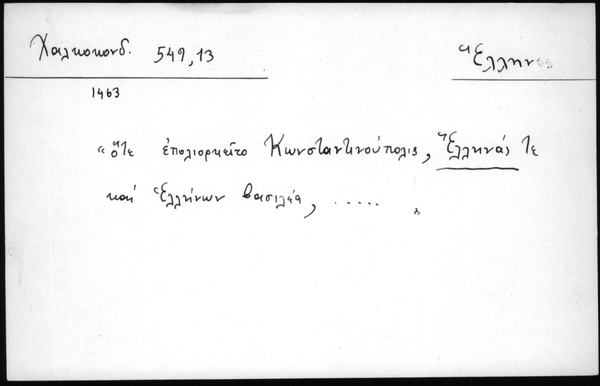 Χαλκοκονδ. 549,13
Ἕλληνες
1463
« ὅτε ἐπολιορκεῖτο Κωνσταντινούπολις, Ἕλληνάς τε
καὶ Ἑλλήνων βασιλέα, ..... »